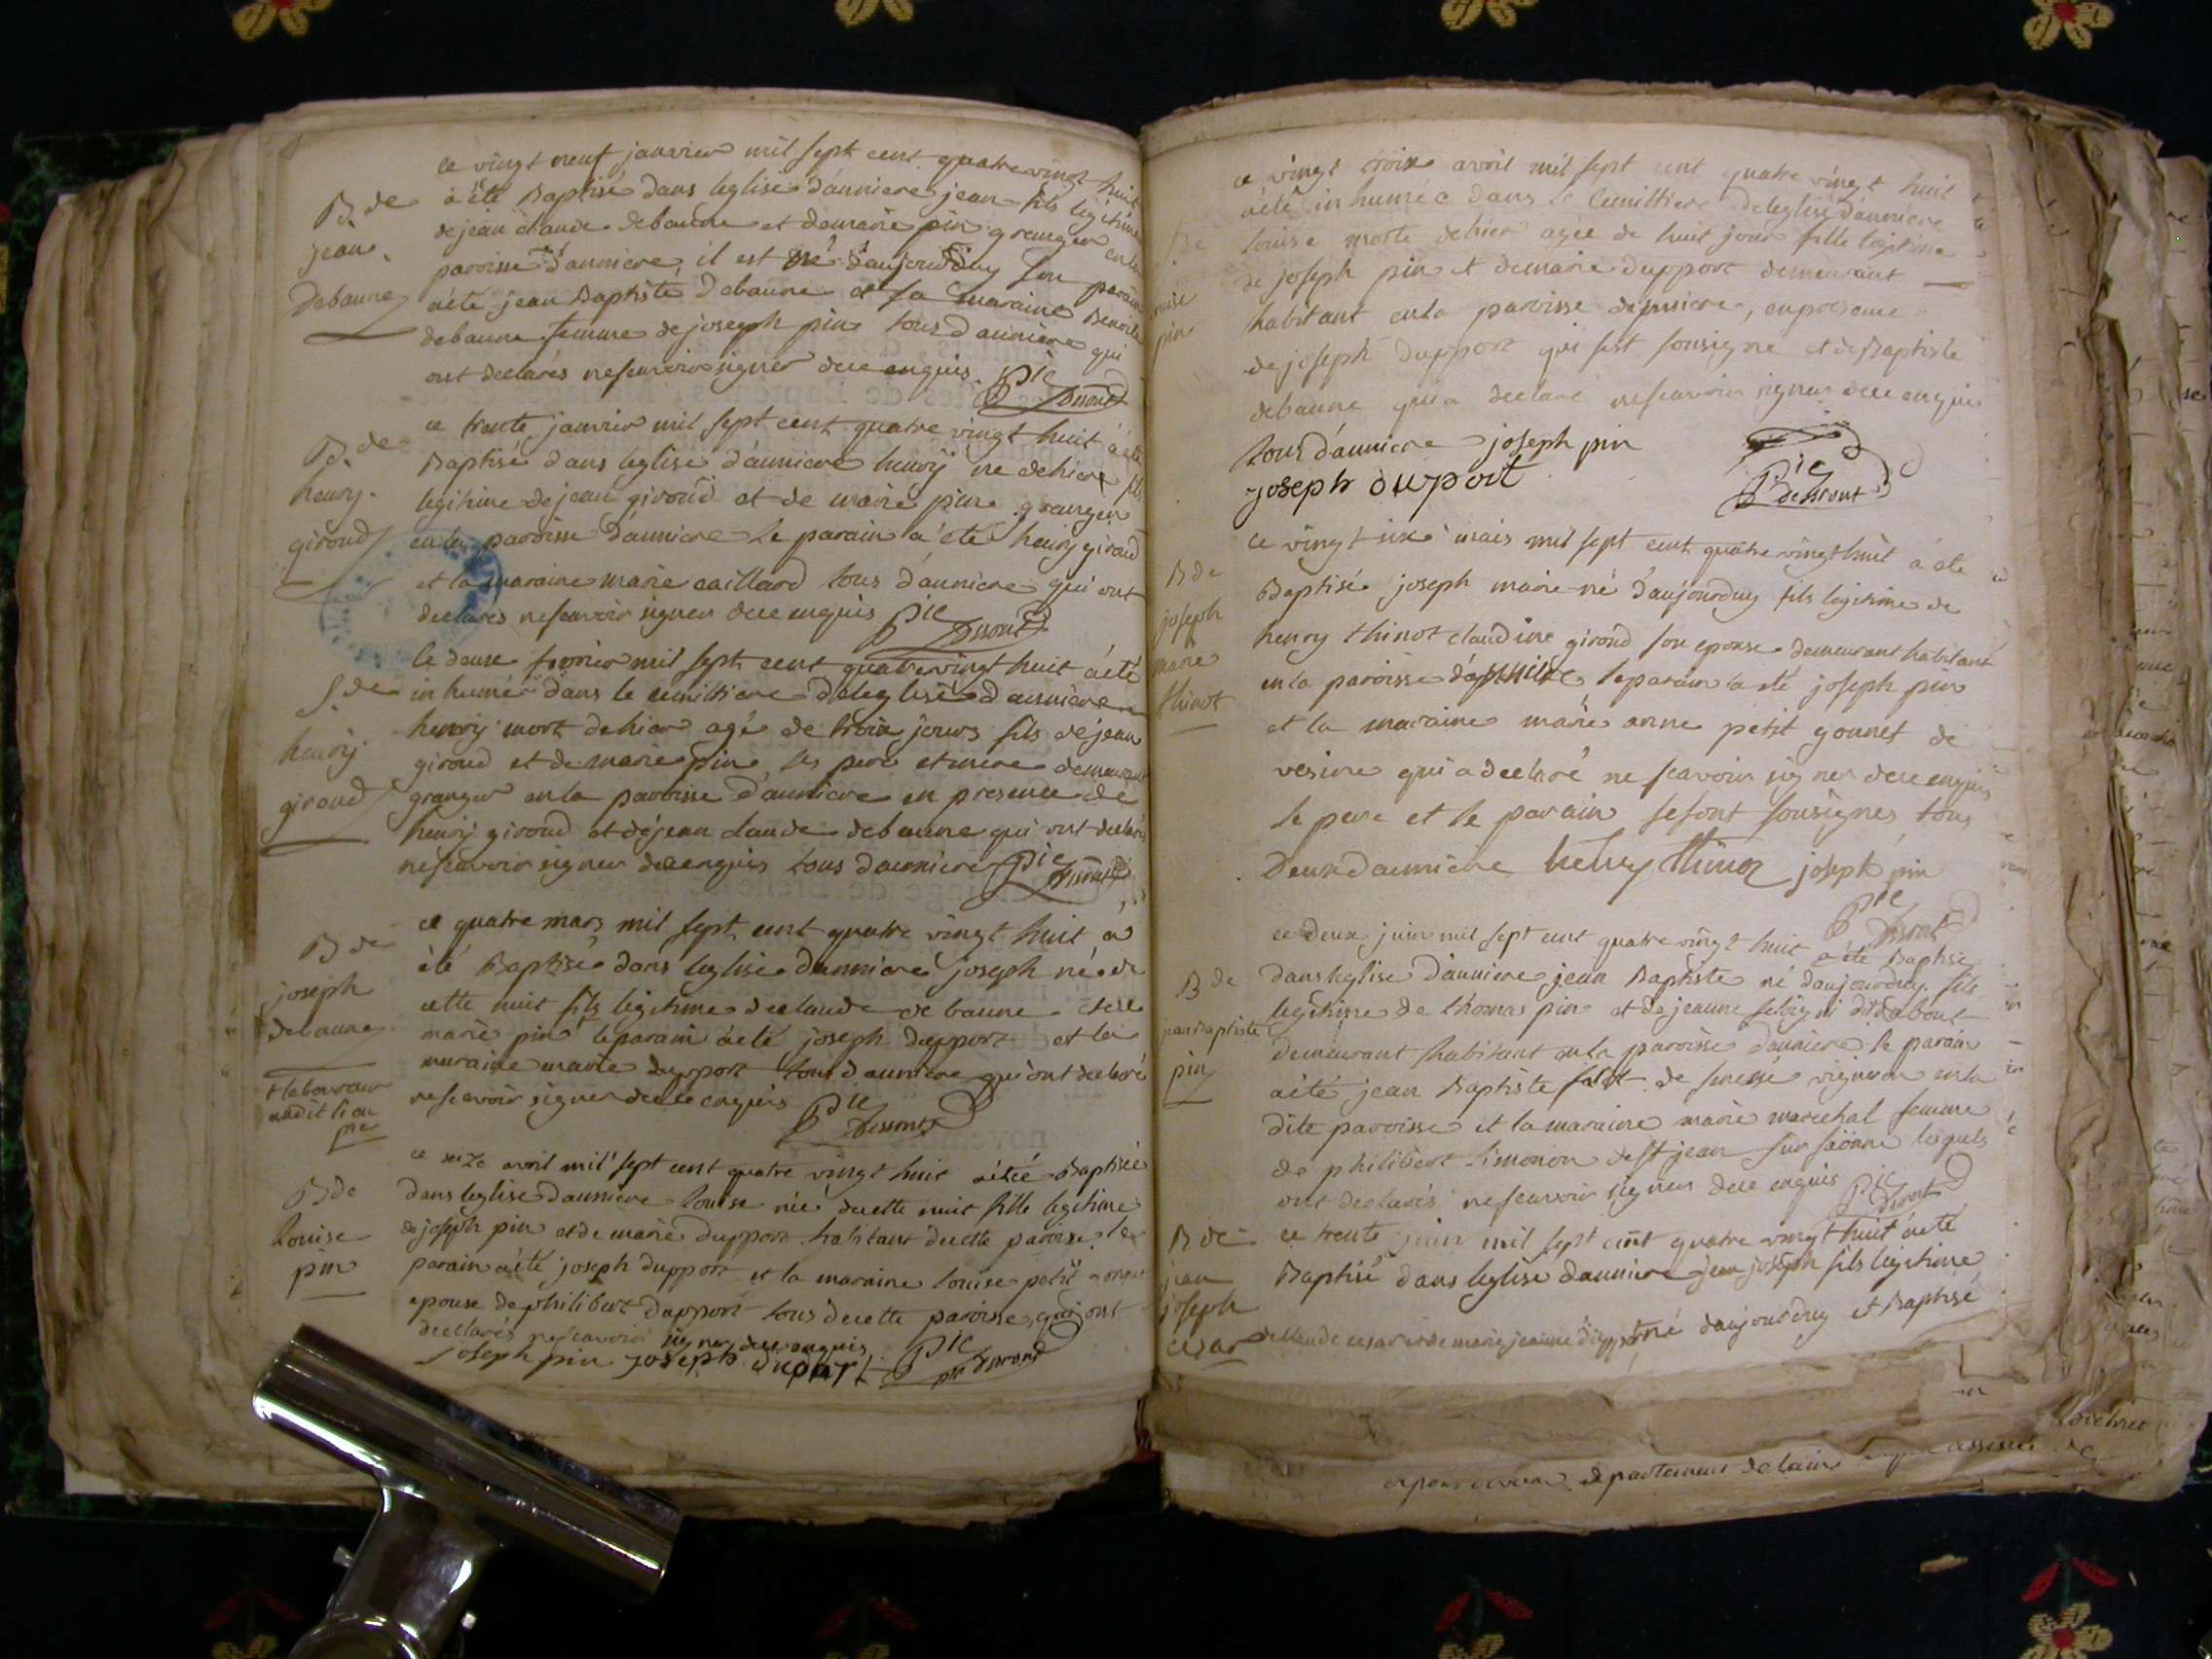 ce vingt neuf janvier mil sept cent quatre vingt huit
B. de
a été Baptisé dans leglise d'aumiere jean fils legitime
jean
de jean claude debaune et de marie pin granger en la
paroisse d'aumiere, il est né d'aujourdhuy son parain
Debaune
a été jean Baptiste debaune et sa maraine Benoite
debaune femme de joseph pin tous d'aumiere qui
ont declarés ne scavoir signer de ce enquis Pic Desront
ce trente janvier mil sept cent quatre vingt huit a été
B. de
Baptisé dans leglise d'aumiere henry né de hier fils
henry
legitime de jean giroud et de marie pin granger
giroud
en la paroisse d'aumiere le parain a été henry giroud
et la maraine marie caillard tous d'aumiere qui ont
declarés ne scavoir signer de ce enquis Pic Desront
le deuse fevrier mil sept cent quatre vingt huit a été
S. de
inhumé dans le cemittiere de leglise d'aumiere
henry
henry mort de hier agé de trois jours fils de jean
giroud et de marie pin les pere et mere demeurant
giroud
granger en la paroisse d'aumiere en presence de
henry giroud et de jean claude debaune qui ont declarés
ne scavoir signer de ce enquis tous d'aumiere Pic Desront
ce quatre mars mil sept cent quatre vingt huit a
B de
été Baptisé dans leglise d'aumiere joseph né de
joseph
cette nuit fils legitime de claude de baune et de
debaune
marie pin le parain a été joseph dupport et la
maraine marie dupport tous d'aumiere qui ont declaré
+ laboureur
ne scavoir signer de ce enquis Pic Desront
audit lieu
pic
ce seize avril mil sept cent quatre vingt huit a été Baptisée
B de
dans leglise d'aumiere louise née de cette nuit fille legitime
Louise
de joseph pin et de marie dupport habitant de cette paroisse, le
pin
parain a été joseph dupport et la maraine louise petit gonnet
epouse de philibert dupport tous de cette paroisse, qui ont
declarés ne scavoir signer de ce enquis
joseph pin joseph duport Pic Desront
ce vingt trois avril mil sept cent quatre vingt huit
a été inhumée dans le cemittiere de leglise d'aumiere
louise morte de hier agée de huit jour fille legitime
de joseph pin et de marie dupport demeurant
pin
habitant en la paroisse d'aumiere, en presence
de joseph dupport qui s'est sousigné et de Baptiste
debaune qui a declaré ne scavoir signer de ce enquis
tous d'aumiere joseph pin
joseph duport Pic Desront
ce vingt six mais mil sept cent quatre vingt huit a été
B de
Baptisé joseph marie né d'aujourduy fils legitime de
joseph
henry thinot claudine giroud son epouse demeurant habitant
marie
en la paroisse d'aumiere le parain a été joseph pin
thinot
et la maraine marie anne petit gonnet de
vesine qui a declaré ne scavoir signer de ce enquis
le pere et le parain se sont sousignés tous
Deux d'aumiere henry thinot joseph pin
Pic Desront
ce deux juin mil sept cent quatre vingt huit a été Baptisé
B de
dans leglise d'aumiere jean Baptiste né d'aujourduy fils
jean Baptiste
legitime de thomas pin et de jeanne
pin
demeurant habitant en la paroisse d'aumiere le parain
a été jean Baptiste de vigneron en la
dite paroisse et la maraine marie marechal femme
de philibert simonon de st jean sur saonne lesquels
ont declarés ne scavoir signer de ce enquis Pic Desront
B de
ce trente juin mil sept cent quatre vingt huit a été
jean
Baptisé dans leglise d'aumiere jean joseph fils legitime
joseph
cesar
de claude cesar et de marie jeanne dupport né d'aujourduy et Baptisé
departement de laine